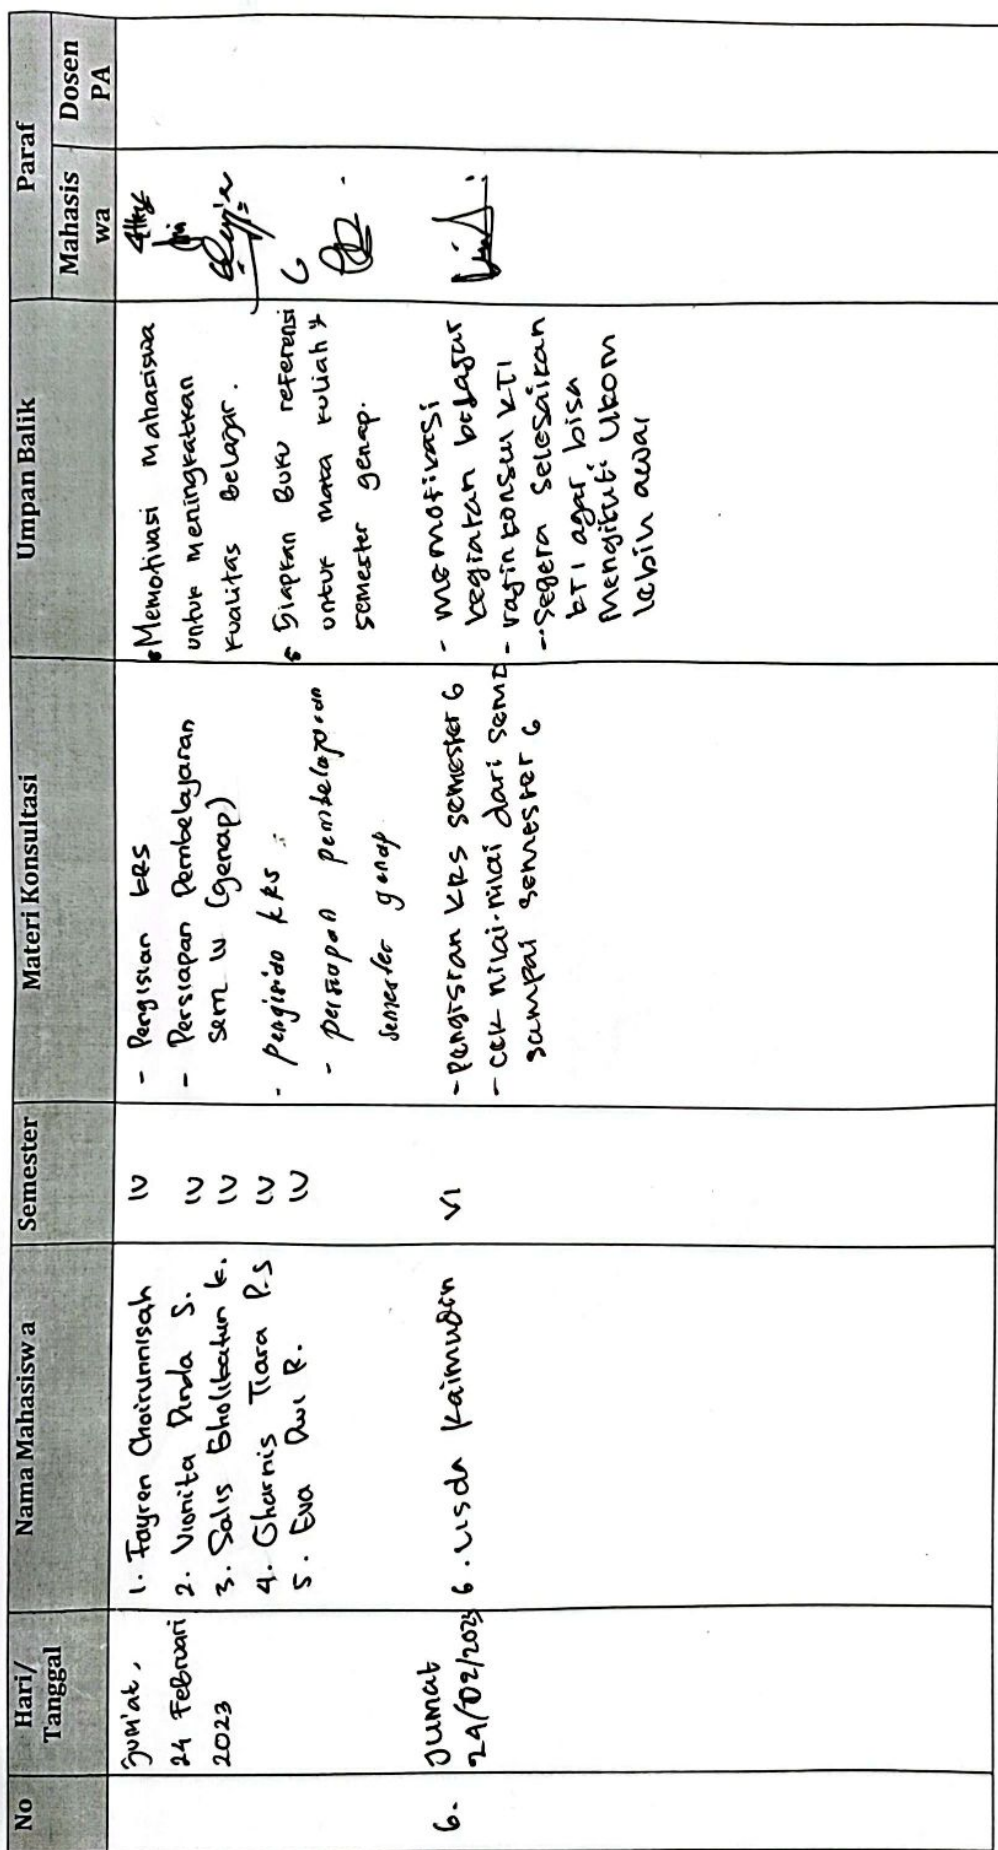 No
Hari/
Tanggal
Nama Mahasiswa
Semester
Materi Konsultasi
Umpan Balik
Paraf
Mahasis
wa
Dosen
PA
Jum'at,
24 Februari
2023
1. Fayren Choirunnisah
2. Vionita Dinda S.
3. Salis Kholikatun K.
4. Gharnis Tiara P.S
5. Eva Dwi R.
IV
IV
IV
IV
IV
- Pengisian KRS
- Persiapan Pembelajaran
sem IV (genap)
- pengisian KRS
- persiapan pembelajaran
semester genap
Memotivasi Mahasiswa
untuk meningkatkan
kualitas belajar.
Siapkan Buku referensi
untuk mata kuliah
semester genap.
6.
Jumat
24/02/2023
6. Lisda Kaimudin
VI
- Pengisian KRS semester 6
- cek nilai-nilai dari sem
sampai semester 6
- memotivasi
kegiatan belajar
- rajin konsul KTI
- Segera selesaikan
KTI agar bisa
mengikuti Ukom
lebih awal